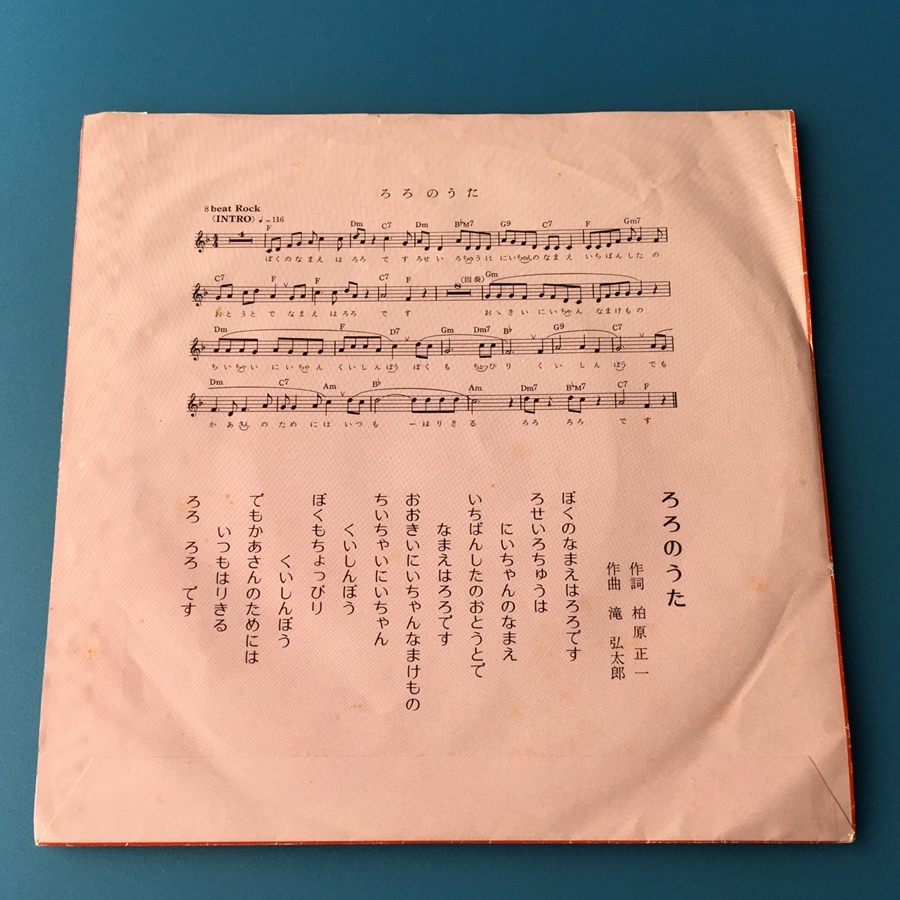 ろろのうた
8 beat Rock
(INTRO) ♩=116
F Dm C7 Dm B♭M7 G9 C7 F Gm7
4
ぼくのなまえ は ろろ で す ろせい ろちゅうは にいちゃんのなま え いちばんした の
C7 F F C7 F (間奏) Gm
8
おとうと で なまえ はろろ で す おゝきい にいちゃん なまけもの
Dm F D7 Gm Dm7 B♭ G9 C7
ちいちゃい にいちゃん くいしんぼう ぼく も ちょっぴり くい しん ぼう でも
Dm C7 Am B♭ Am Dm7 B♭M7 C7 F
か あさん の ため に は いつ も ーはりき る ろろ ろろ で す
ろろのうた
作詞 柏原正一
作曲 滝 弘太郎
ぼくのなまえはろろです
ろせいろちゅうは
にいちゃんのなまえ
いちばんしたのおとうとで
なまえはろろです
おおきいにいちゃんなまけもの
ちいちゃいにいちゃん
くいしんぼう
ぼくもちょっぴり
くいしんぼう
でもかあさんのためには
いつもはりきる
ろろ ろろ です